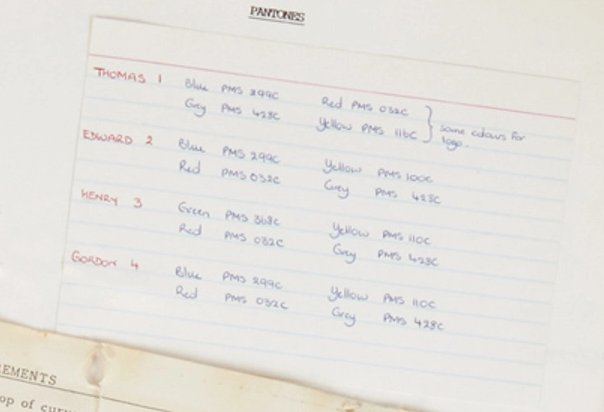 PANTONES
THOMAS 1 Blue PMS 299C Red PMS 032C
Grey PMS 428C Yellow PMS 116C } same colours for logo.
EDWARD 2 Blue PMS 299C Yellow PMS 100C
Red PMS 032C Grey PMS 428C
HENRY 3 Green PMS 368C Yellow PMS 110C
Red PMS 032C Grey PMS 428C
GORDON 4 Blue PMS 299C Yellow PMS 110C
Red PMS 032C Grey PMS 428C
EMENTS
op of